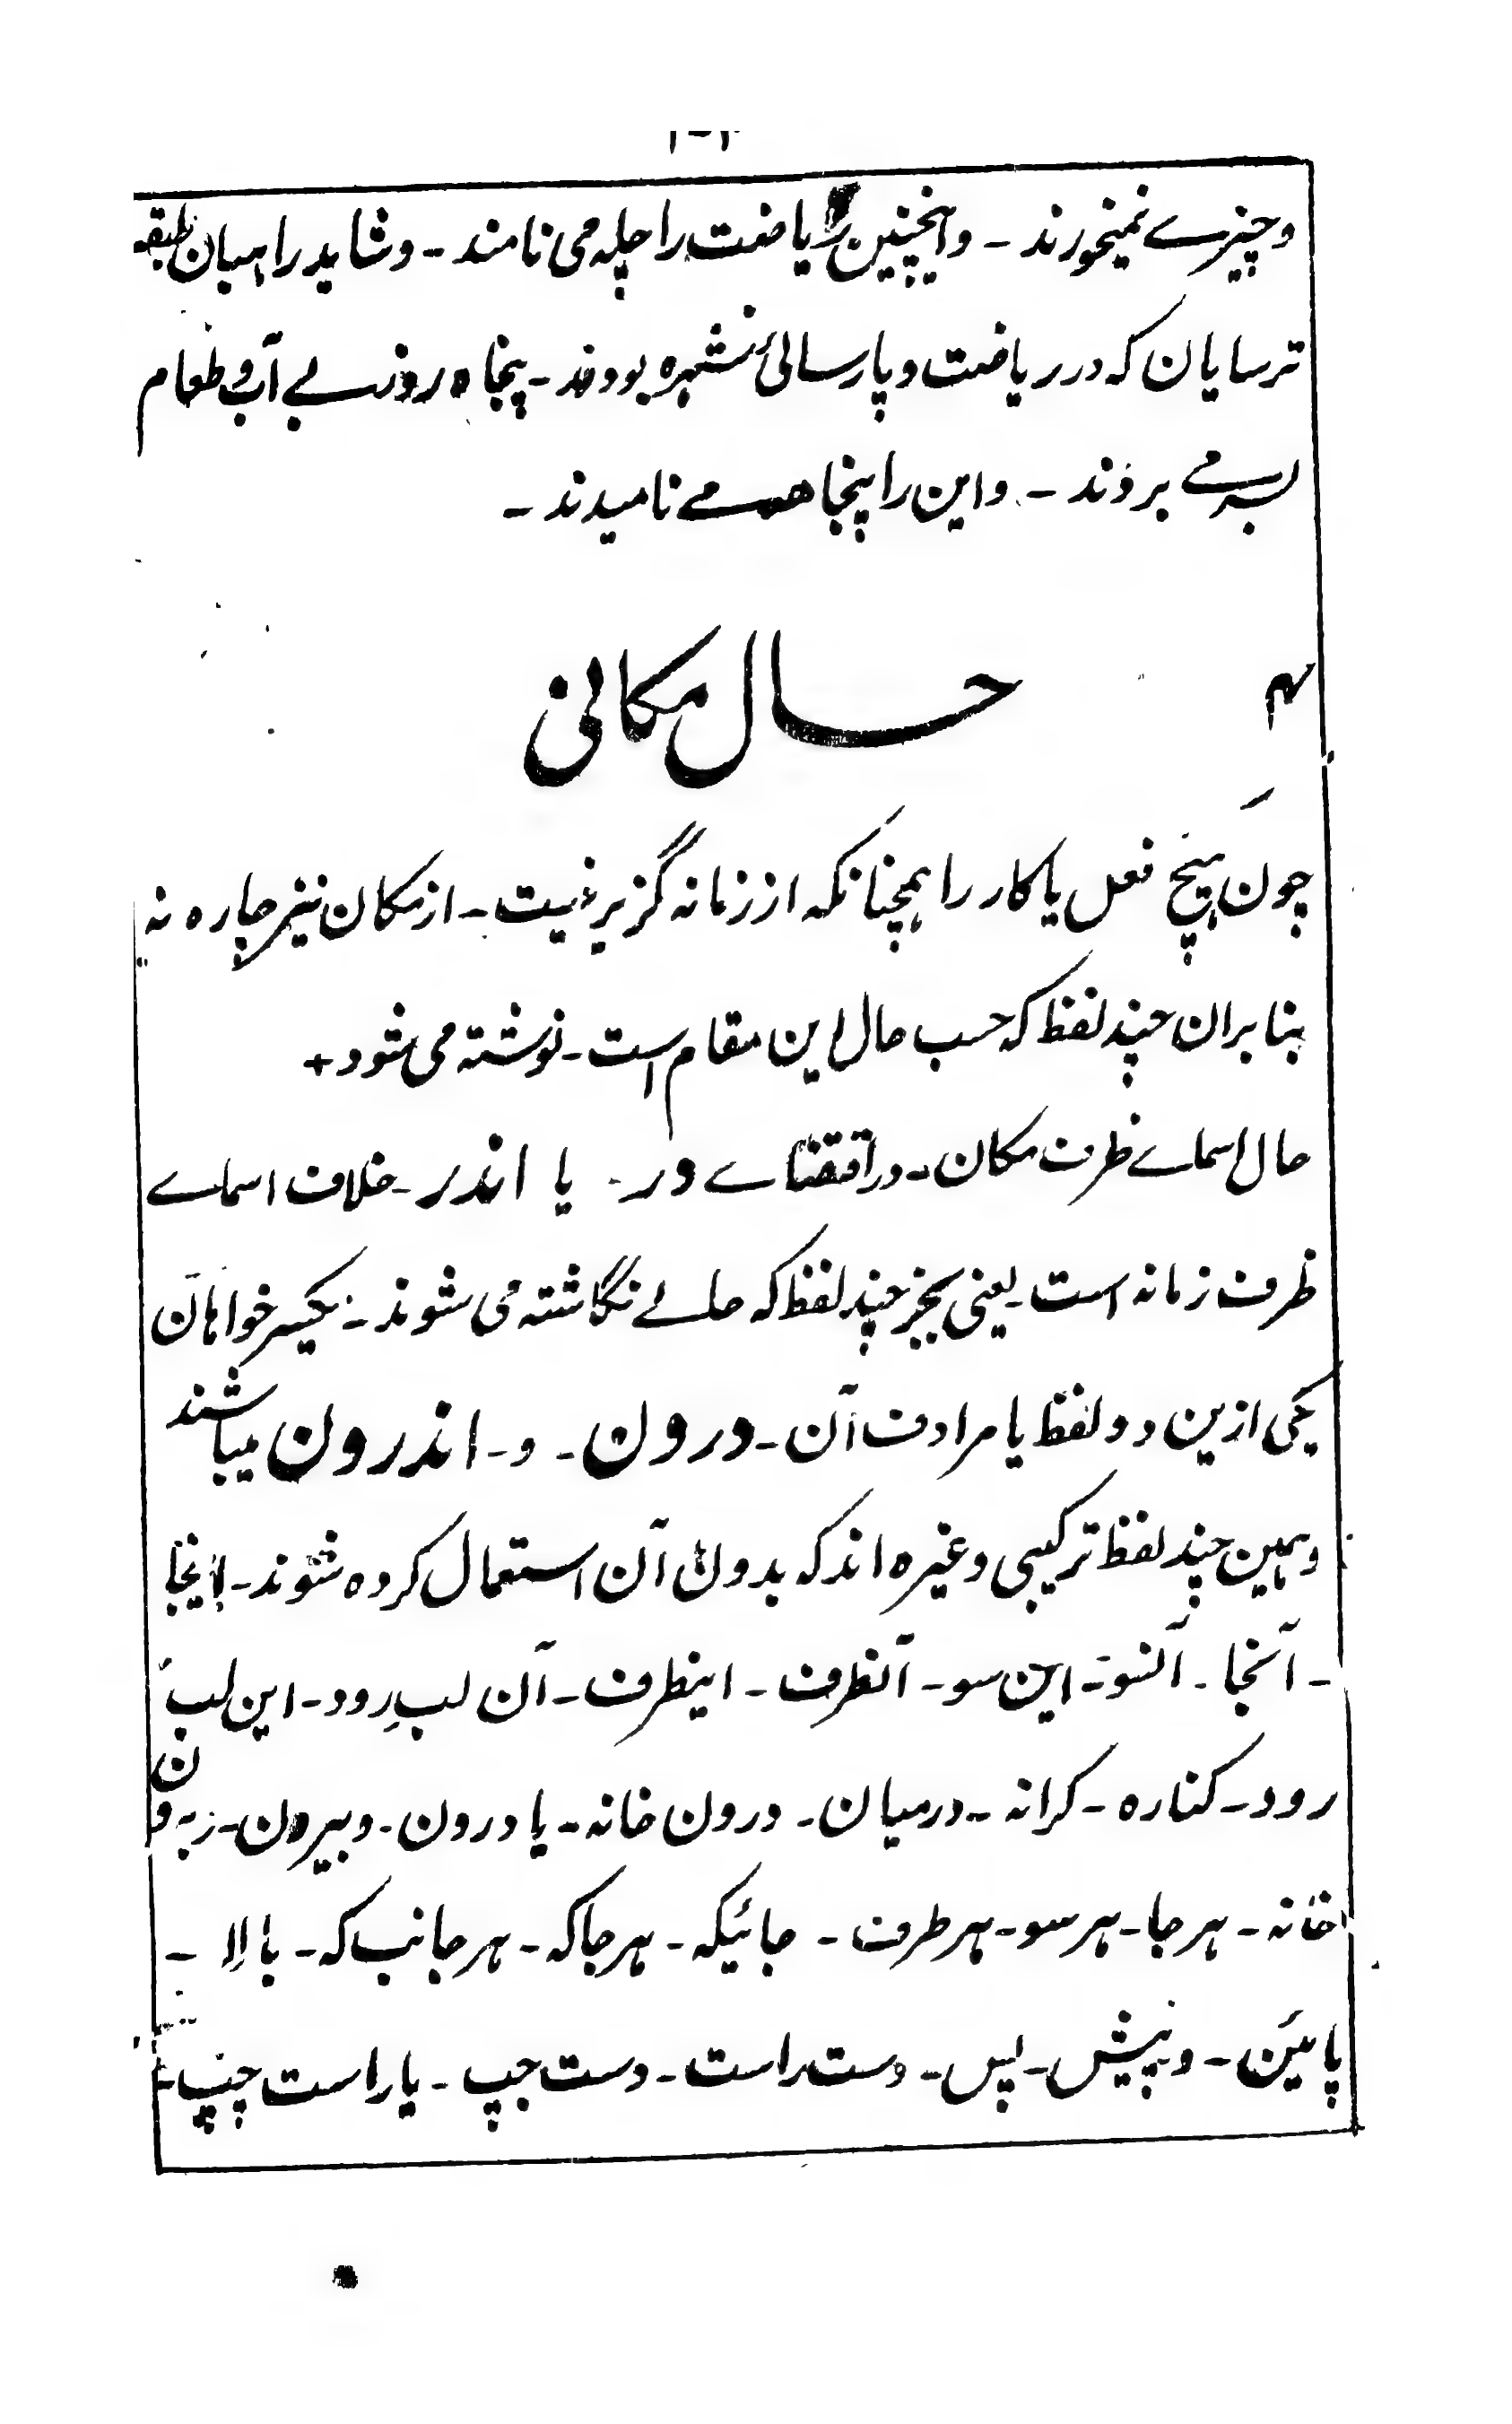 و چیزے نمیخورند ۔ و اینچنین ریاضت را چله می نامند ۔ و شاید راهبان طبقه
ترسایان که در ریاضت و پارسائی شهره بودند ۔ پنجاه روز بے آب و طعام
بسر مے بردند ۔ و این را پنجاهه مے نامیدند ۔
۴ حال مکانی
چون هیچ فعل یا کار را همچنانکه از زمانه گزیر نیست ۔ از مکان نیز چاره نه
بنابران چند لفظ که حسب حال این مقام است ۔ نوشته می شود +
حال اسماے ظرف مکان ۔ در اقتضاے در ۔ یا اندر ۔ خلاف اسماے
ظرف زمانه است ۔ یعنی بجز چند لفظ که حالے نگاشته می شوند ۔ یکسر خواهان
یکی ازین دو لفظ یا مرادف آن ۔ درون ۔ و ۔ اندرون میباشند
و همین چند لفظ ترکیبی و غیره اند که بدون آن استعمال کرده شوند ۔ اینجا
۔ آنجا ۔ آنسو ۔ این سو ۔ آنطرف ۔ اینطرف ۔ آن لبِ رود ۔ این لب
رود ۔ کناره ۔ کرانه ۔ درمیان ۔ درون خانه ۔ یا درون ۔ و بیرون ۔
خانه ۔ هر جا ۔ هر سو ۔ هر طرف ۔ جائیکه ۔ هر جا که ۔ هر جانب که ۔ بالا ۔
پائین ۔ و پیش ۔ پس ۔ دست راست ۔ دست چپ ۔ یا راست چپ ۔